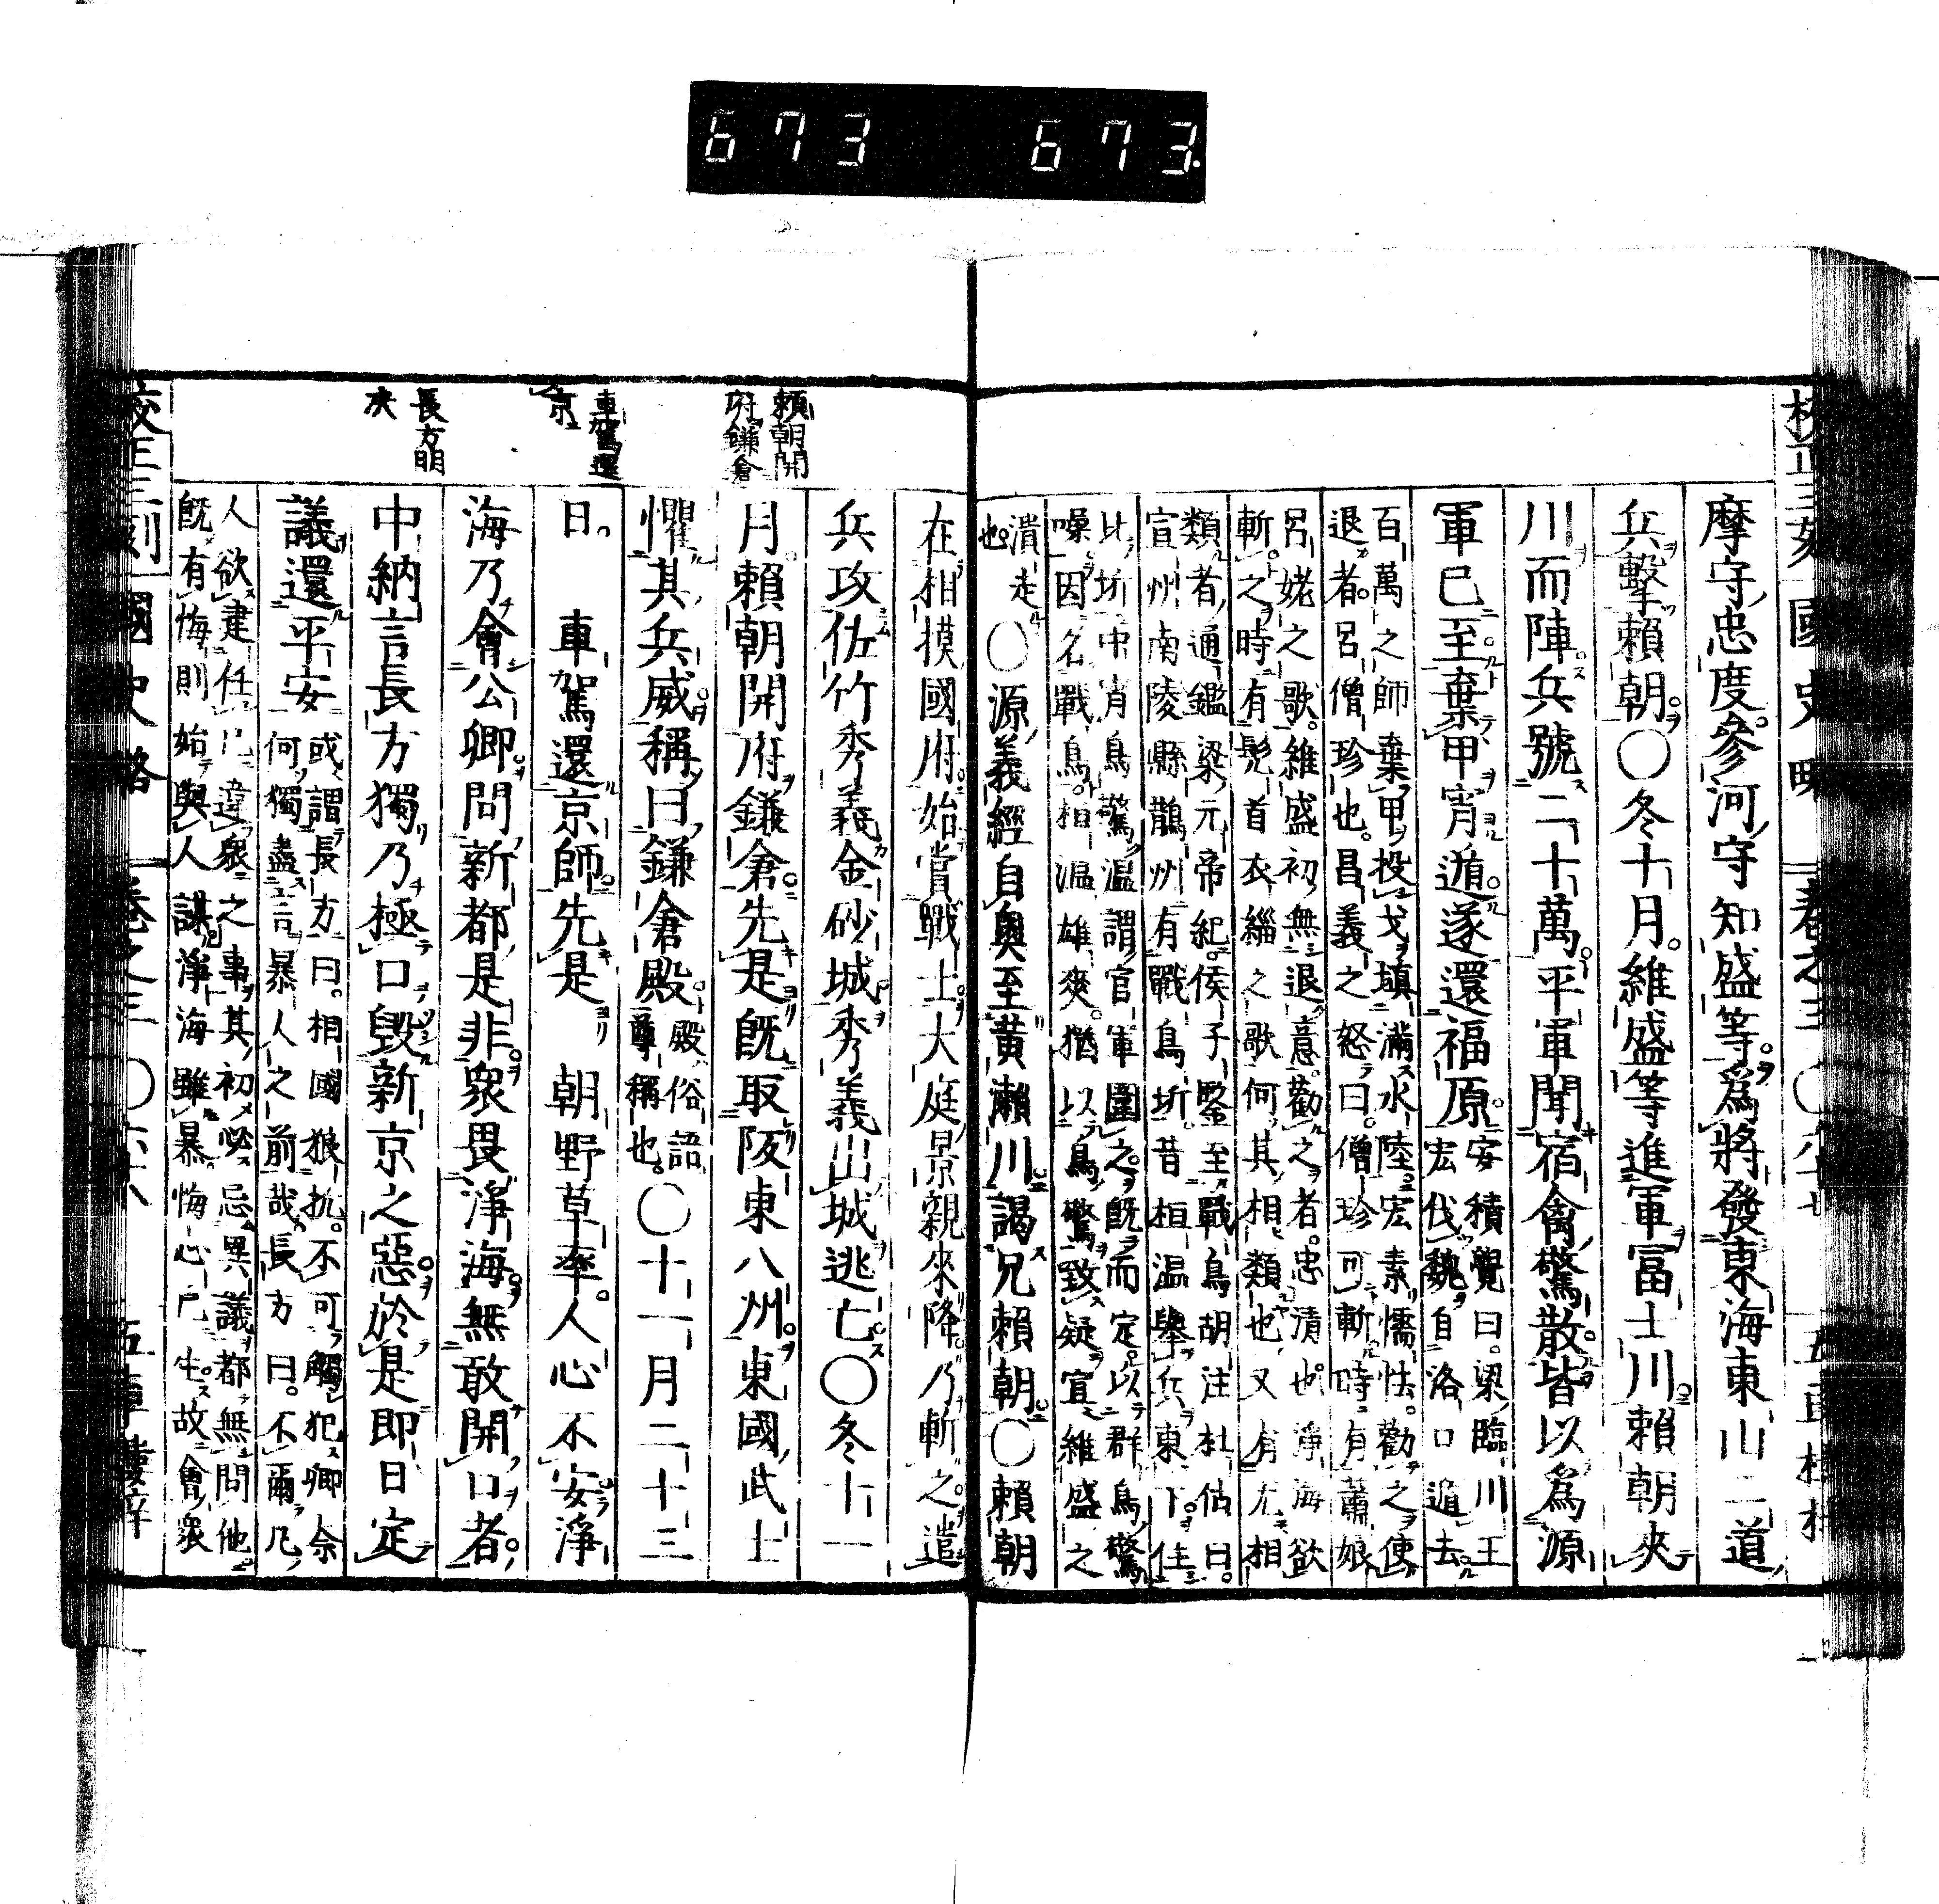 673 673
摩守忠度參河守知盛等爲將發東海東山二道
兵擊賴朝〇冬十月維盛等進軍冨士川賴朝夾
川而陣兵號二十萬平軍聞宿禽驚散皆以爲源
軍已至棄甲宵遁遂還福原
安積覺曰梁臨川王
宏伐魏自洛口遁去
百萬之師棄甲投戈塡滿水陸宏素懦怯勸之使
退者呂僧珍也昌義之怒曰僧珍可斬時有蕭娘
呂姥之歌維盛初無退意勸之者忠淸也淨海欲
斬之時有髡首衣緇之歌何其相類也又有尤相
類者通鑑梁元帝紀侯子鑒至戰鳥胡注杜佑曰
宣州南陵縣鵲州有戰鳥圻昔桓溫擧兵東下住
比圻中宵鳥驚溫謂官軍圍之旣而定以群鳥驚
噪因名戰鳥桓溫雄爽猶以鳥驚致疑宜維盛之
潰走
也
〇源義經自奧至黃瀨川謁兄賴朝〇賴朝
在相摸國府始賞戰士大庭景親來降乃斬之遣
兵攻佐竹秀義金砂城秀義出城逃亡〇冬十一
月賴朝開府鎌倉先是旣取阪東八州東國武士
懼其兵威稱曰鎌倉殿
殿俗語
尊稱也
〇十一月二十三
日 車駕還京師先是 朝野草率人心不安淨
海乃會公卿問新都是非衆畏淨海無敢開口者
中納言長方獨乃極口毀新京之惡於是卽日定
議還平安
或謂長方曰相國狼抗不可觸犯卿余
何獨盡言暴人之前哉長方曰不爾凡
人欲建任己違衆之事其初必忌異議都無問他
旣有悔則始與人謀淨海雖暴悔心已生故會衆
賴朝開
府鎌倉
車駕還
京
長方明
决
校正三刻國史略 卷之三